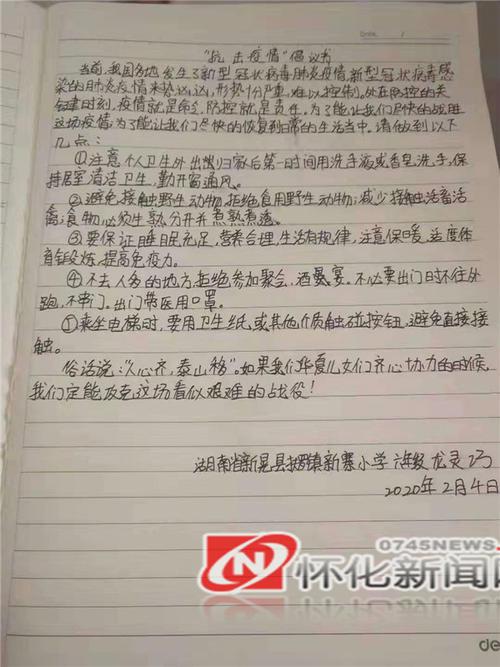 Date. /
“抗击疫情”倡议书
当前，我国各地发生了新型冠状病毒肺炎疫情，新型冠状病毒感
染的肺炎疫情来势汹汹，形势十分严重，难以控制，处在防控的关
键时刻，疫情就是命令，防控就是责任。为了能让我们尽快的战胜
这场疫情，为了能让我们尽快的恢复到日常的生活当中。请做到以下
几点：
①注意个人卫生外出或归家后第一时间用洗手液或香皂洗手，保
持居室清洁卫生，勤开窗通风。
②避免接触野生动物，拒绝食用野生动物；减少接触活畜活
禽；食物必须生熟分开并煮熟煮透。
③要保证睡眠充足，营养合理，生活有规律，注意保暖，适度体
育锻炼，提高免疫力。
④不去人多的地方，拒绝参加聚会，酒宴。不必要出门时不往外
跑，不串门。出门带医用口罩。
⑤乘坐电梯时，要用卫生纸，或其他介质触碰按钮，避免直接接
触。
俗话说：“人心齐，泰山移”。如果我们华夏儿女们齐心协力的时候，
我们定能攻克这场看似艰难的战役！
湖南省新晃县扶罗镇新寨小学 六年级 龙灵巧
2020年2月4日
0745NEWS.
怀化新闻网
de